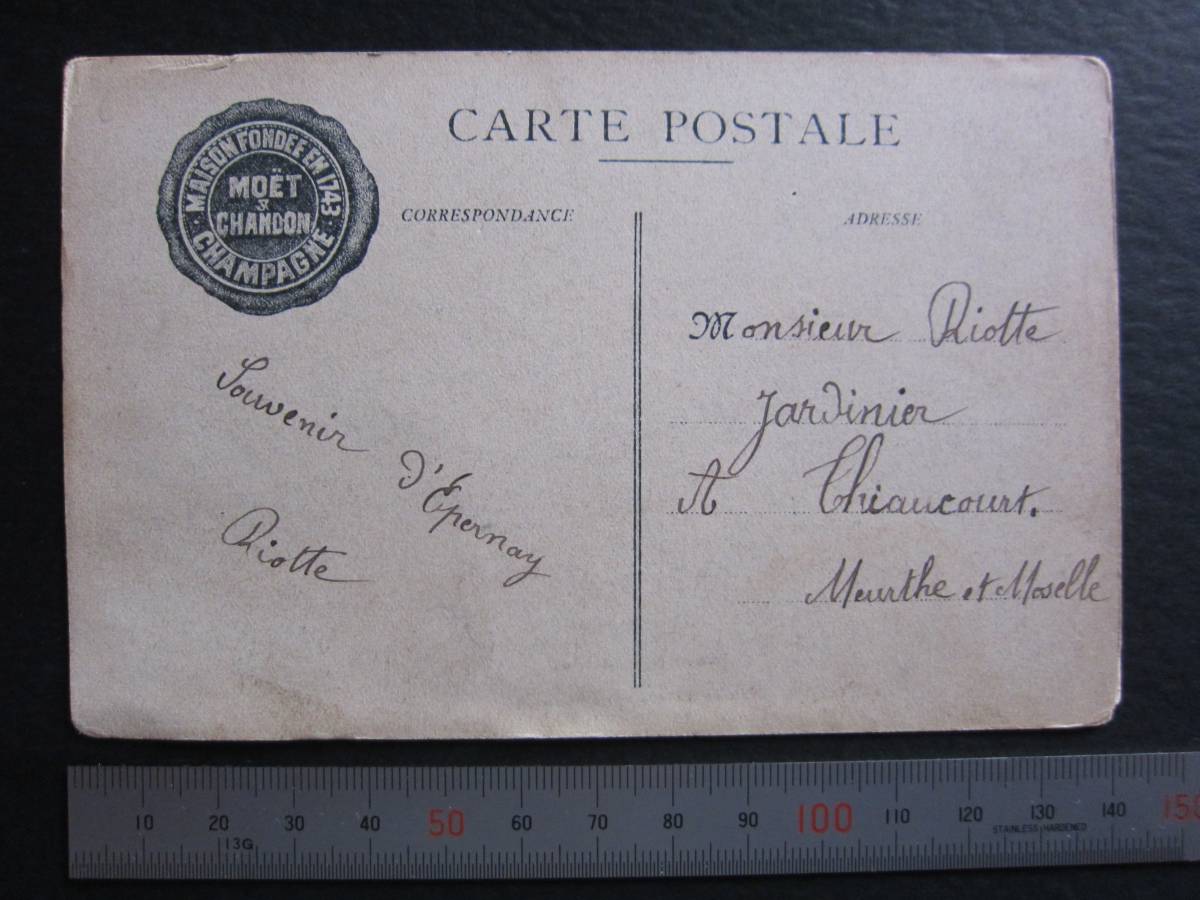 CARTE POSTALE
MAISON FONDÉE EN 1743
MOËT
&
CHANDON
CHAMPAGNE
CORRESPONDANCE
ADRESSE
Souvenir d'Epernay
Riotte
Monsieur Riotte
Jardinier
A Thiaucourt.
Meurthe et Moselle
10 20 30 40 50 60 70 80 90 100 110 120 130 140 150
13G
STAINLESS HARDENED